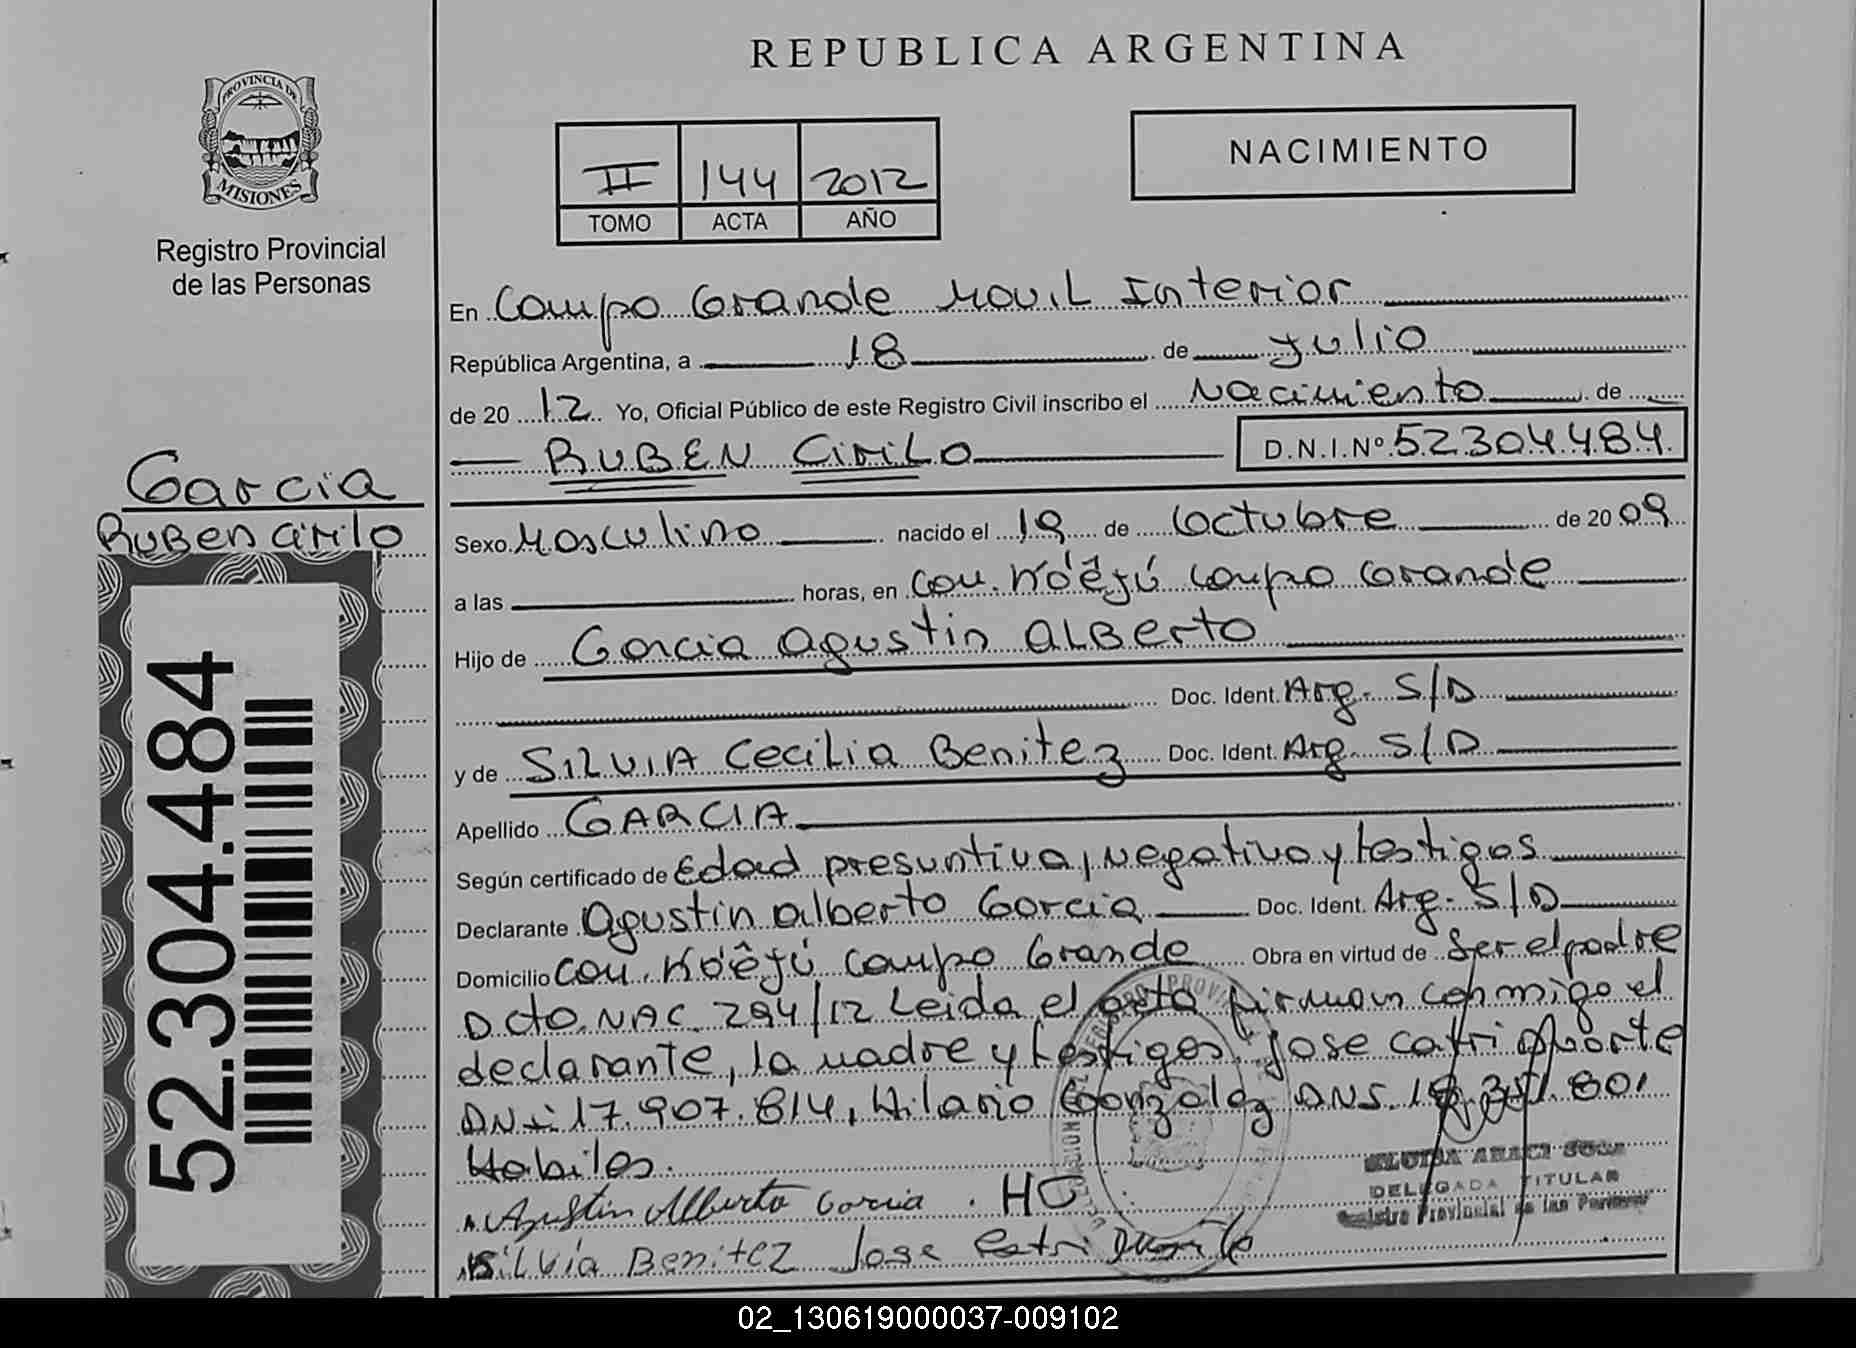 REPUBLICA ARGENTINA
PROVINCIA DE
MISIONES
Registro Provincial
de las Personas
NACIMIENTO
II 144 2012
TOMO ACTA AÑO
En Campo Grande Movil Interior
República Argentina, a 18 de Julio
de 20 12 Yo, Oficial Público de este Registro Civil inscribo el Nacimiento de
RUBEN CiRiLO D.N.I.Nº 52304484
Garcia
Ruben Cirilo
52.304.484
Sexo Masculino nacido el 19 de Octubre de 20 09
a las horas, en Com. Ko'êjú Campo Grande
Hijo de Garcia Agustin ALBerto
Doc. Ident. Arg. S/D
y de SILVIA Cecilia Benitez Doc. Ident. Arg. S/D
Apellido GARCIA
Según certificado de Edad presuntiva, negativo y testigos
Declarante Agustin Alberto Garcia Doc. Ident. Arg. S/D
Domicilio Com. Ko'êjú Campo Grande Obra en virtud de Ser el padre
Dcto. NAC. 294/12 Leida el acta firman conmigo el
declarante, la madre y testigos Jose Catri
DNI 17.907.814, Hilario Gonzalez DNI. 801
Habiles.
Agustin Alberto Garcia . HG
Silvia Benitez Jose Catri
DELEGADA TITULAR
Registro Provincial de las Personas
02_130619000037-009102